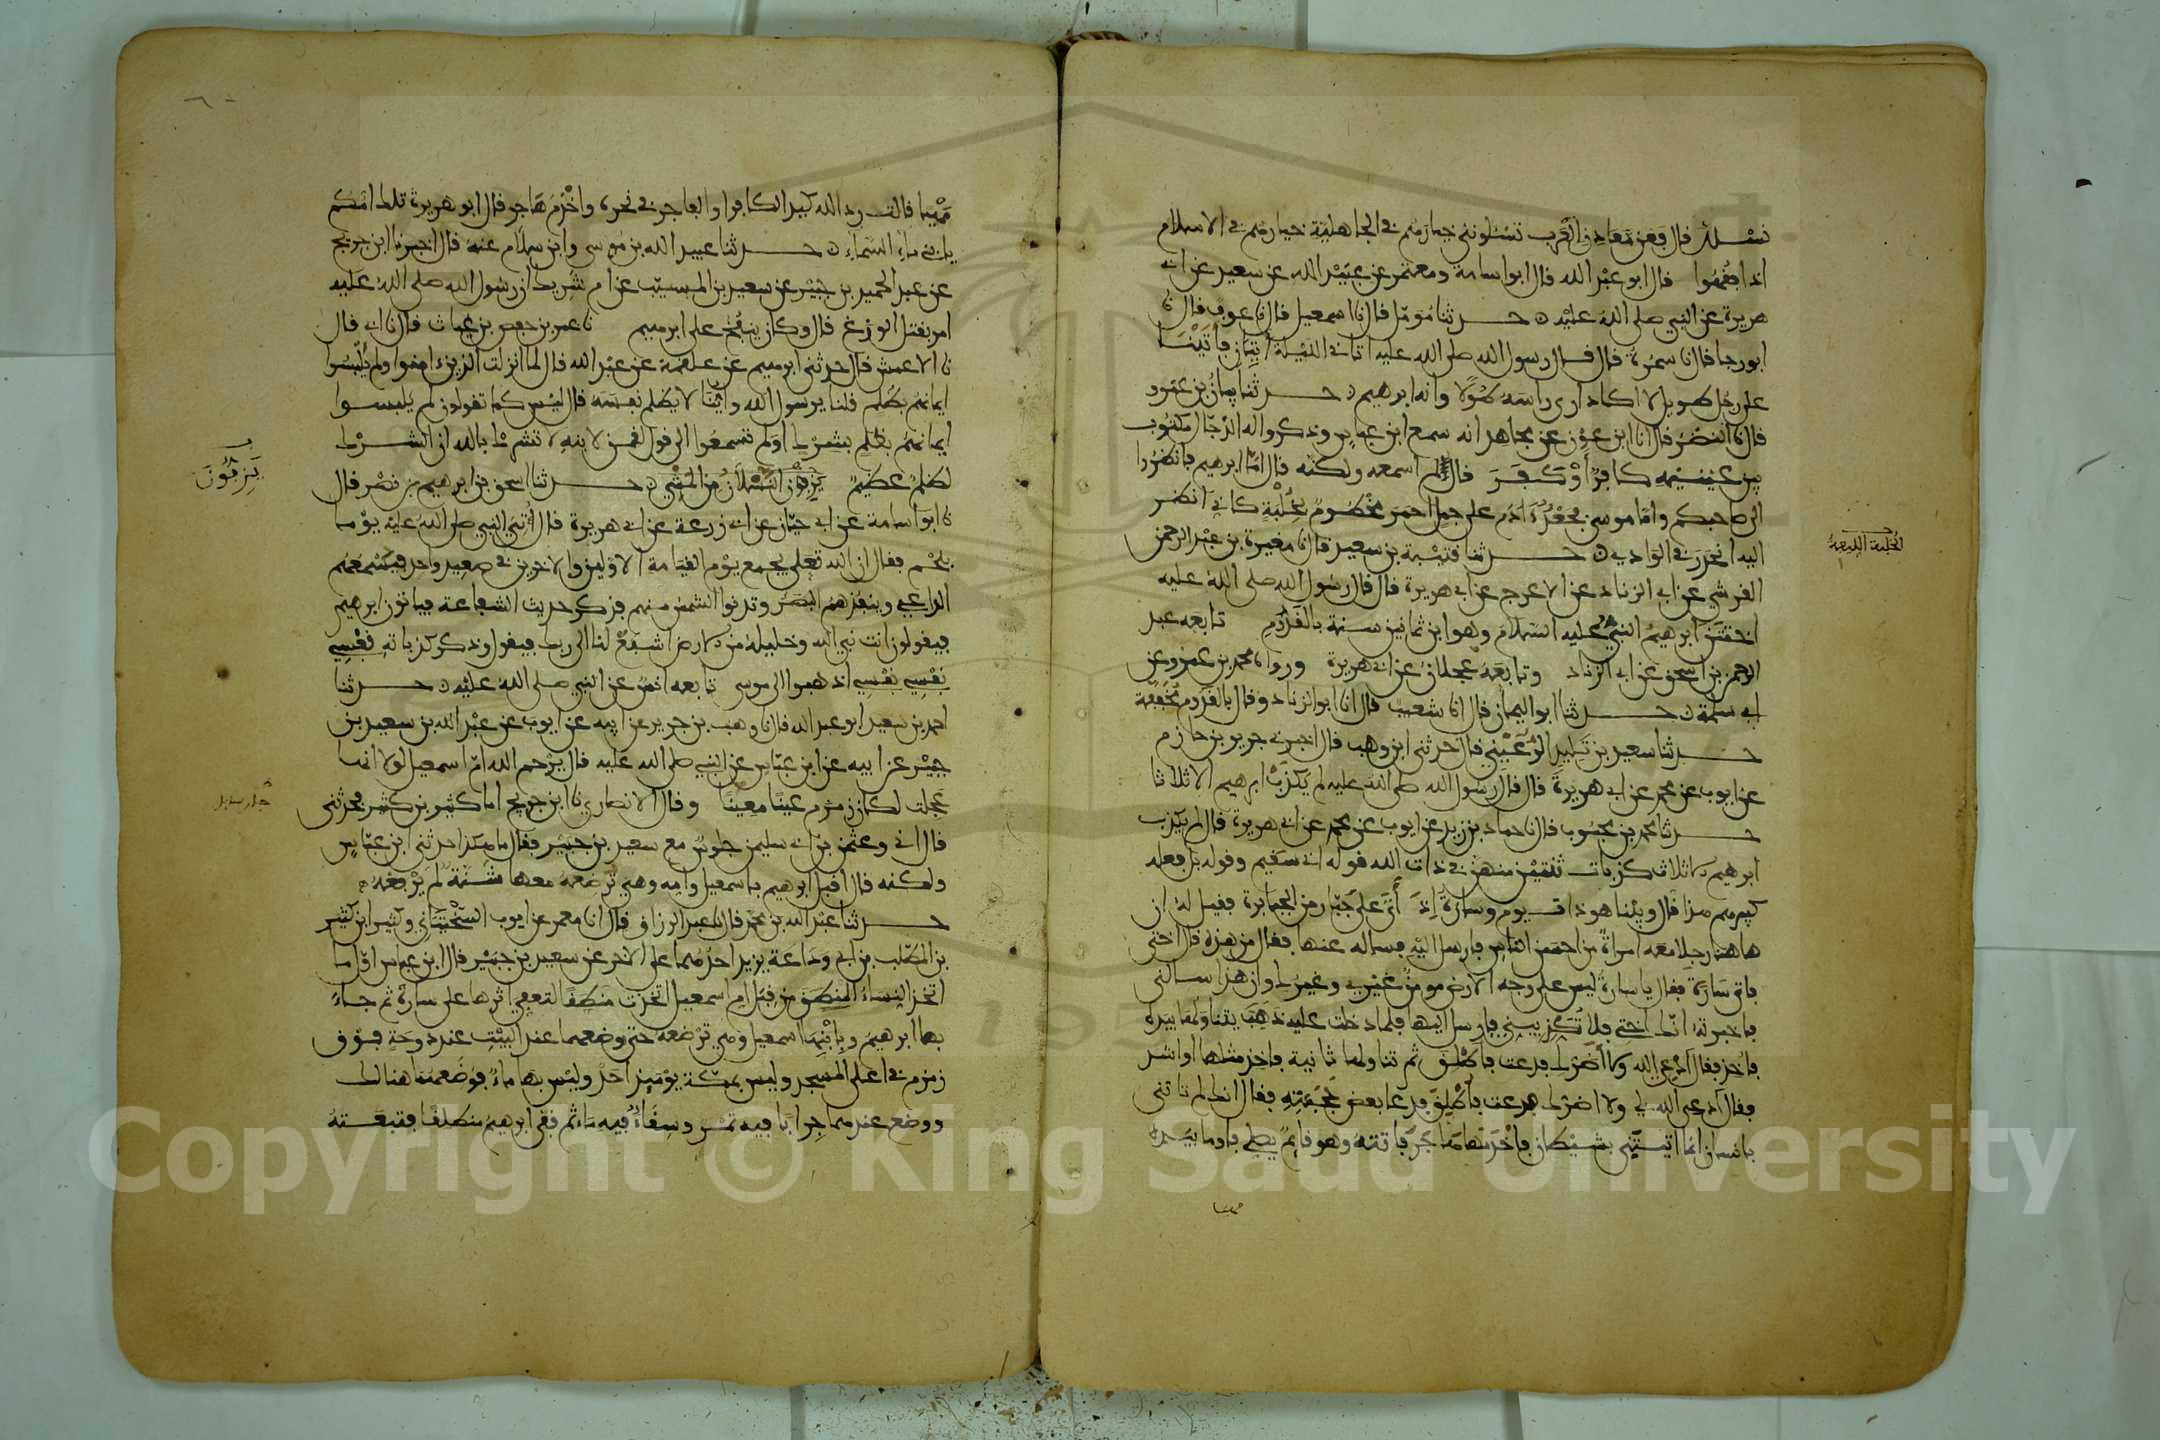 نسئلك قال فعن معادن العرب تسئلونني خيارهم في الجاهلية خيارهم في الاسلام
اذا فقهوا قال ابو عبد الله قال ابو اسامة ومعتمر عن عبيد الله عن سعيد عن ابي
هريرة عن النبي صلى الله عليه حدثنا مومل قال نا اسمعيل قال نا عوف قال نا
ابو رجا قال نا سمرة قال قال رسول الله صلى الله عليه اتاني الليلة اتيان فاتينا
على رجل طويل لا اكاد ارى راسه طولا وانه ابرهيم حدثنا بيان بن عمرو
قال نا النضر قال انا ابن عون عن مجاهد انه سمع ابن عباس وذكروا له الدجال مكتوب
بين عينيه كافر او ك ف ر قال لم اسمعه ولكنه قال اما ابرهيم فانظروا
الى صاحبكم واما موسى فجعد ادم على جمل احمر مخطوم بخلبة كاني انظر
اليه انحدر في الوادي حدثنا قتيبة بن سعيد قال نا مغيرة بن عبد الرحمن
القرشي عن ابي الزناد عن الاعرج عن ابي هريرة قال قال رسول الله صلى الله عليه
اختتن ابرهيم النبي عليه السلام وهو ابن ثمانين سنة بالقدوم تابعه عبد
الرحمن بن اسحق عن ابي الزناد وتابعه عجلان عن ابي هريرة ورواه محمد بن عمرو عن
ابي سلمة حدثنا ابو اليمان قال انا شعيب قال انا ابو الزناد وقال بالقدوم مخففة
حدثنا سعيد بن تليد الرعيني قال حدثني ابن وهب قال اخبرني جرير بن حازم
عن ايوب عن محمد عن ابي هريرة قال قال رسول الله صلى الله عليه لم يكذب ابرهيم الا ثلاثا
حدثنا محمد بن محبوب قال نا حماد بن زيد عن ايوب عن محمد عن ابي هريرة قال لم يكذب
ابرهيم الا ثلاث كذبات ثنتين منهن في ذات الله قوله اني سقيم وقوله بل فعله
كبيرهم هذا قال وبينا هو ذات يوم وسارة اذ اتى على جبار من الجبابرة فقيل له ان
هاهنا رجلا معه امراة من احسن الناس فارسل اليه فساله عنها فقال من هذه قال اختي
فاتى سارة فقال يا سارة ليس على وجه الارض مومن غيري وغيرك وان هذا سالني
فاخبرته انك اختي فلا تكذبيني فارسل اليها فلما دخلت عليه ذهب يتناولها بيده
فاخذ فقال ادعي الله ولا اضرك فدعت فاطلق ثم تناولها ثانية فاخذ مثلها او اشد
فقال ادعي الله لي ولا اضرك فدعت فاطلق فدعا بعض حجبته فقال انك لم تاتني
بانسان انما اتيتني بشيطان فاخدمها هاجر فاتته وهو قائم يصلي فاوما بيده
مهيا
مهيا قالت رد الله كيد الكافر او الفاجر في نحره واخدم هاجر قال ابو هريرة تلك امكم
يا بني ماء السماء حدثنا عبيد الله بن موسى وابن سلام عنه قال اخبرنا ابن جريج
عن عبد الحميد بن جبير عن سعيد بن المسيب عن ام شريك ان رسول الله صلى الله عليه
امر بقتل الوزغ قال وكان ينفخ على ابرهيم نا عمر بن حفص بن غياث قال نا ابي قال
نا الاعمش قال حدثني ابرهيم عن علقمة عن عبد الله قال لما انزلت الذين ءامنوا ولم يلبسوا
ايمانهم بظلم قلنا يرسول الله واينا لا يظلم نفسه قال ليس كما تقولون لم يلبسوا
ايمانهم بظلم بشرك اولم تسمعوا الى قول لقمن لابنه لا تشرك بالله ان الشرك
لظلم عظيم يزفون النسلان من المشي حدثنا اسحق بن ابرهيم بن نصر قال
نا ابو اسامة عن ابي حيان عن ابي زرعة عن ابي هريرة قال اتي النبي صلى الله عليه يوما
بلحم فقال ان الله تعلى يجمع يوم القيامة الاولين والاخرين في صعيد واحد فيسمعهم
الداعي وينفذهم البصر وتدنوا الشمس منهم فذكر حديث الشفاعة فياتون ابرهيم
فيقولون انت نبي الله وخليله من الارض اشفع لنا الى ربك فيقول وذكر كذباته نفسي
نفسي نفسي اذهبوا الى موسى تابعه انس عن النبي صلى الله عليه حدثنا
احمد بن سعيد ابو عبد الله قال نا وهب بن جرير عن ابيه عن ايوب عن عبد الله بن سعيد بن
جبير عن ابيه عن ابن عباس عن النبي صلى الله عليه قال يرحم الله ام اسمعيل لولا انها
عجلت لكان زمزم عينا معينا وقال الانصاري نا ابن جريج اما كثير بن كثير فحدثني
قال اني وعثمن بن ابي سليمن جلوس مع سعيد بن جبير فقال ما هكذا حدثني ابن عباس
ولكنه قال اقبل ابرهيم باسمعيل وامه وهي ترضعه معها شنة لم يرفعه
حدثنا عبد الله بن محمد قال نا عبد الرزاق قال انا معمر عن ايوب السختياني وكثير ابن كثير
بن المطلب بن ابي وداعة يزيد احدهما على الاخر عن سعيد بن جبير قال ابن عباس اول ما
اتخذ النساء المنطق من قبل ام اسمعيل اتخذت منطقا لتعفي اثرها على سارة ثم جاء
بها ابرهيم وبابنها اسمعيل وهي ترضعه حتى وضعهما عند البيت عند دوحة فوق
زمزم في اعلى المسجد وليس بمكة يومئذ احد وليس بها ماء فوضعهما هنالك
ووضع عندهما جرابا فيه تمر وسقاء فيه ماء ثم قفى ابرهيم منطلقا فتبعته
يزفون